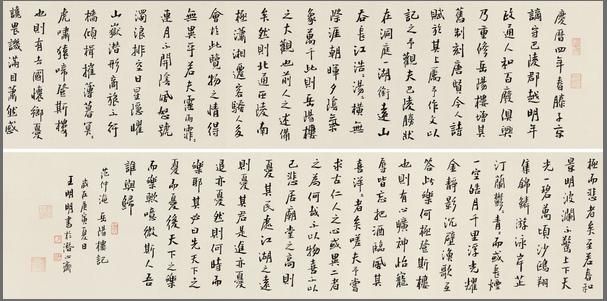 慶曆四年春滕子京
謫守巴陵郡越明年
政通人和百廢俱興
乃重修岳陽樓增其
舊制刻唐賢今人詩
賦於其上屬予作文以
記之予觀夫巴陵勝狀
在洞庭一湖銜遠山
吞長江浩浩湯湯橫無
際涯朝暉夕陰氣
象萬千此則岳陽樓
之大觀也前人之述備
矣然則北通巫峽南
極瀟湘遷客騷人多
會於此覽物之情得
無異乎若夫霪雨霏霏
連月不開陰風怒號
濁浪排空日星隱曜
山嶽潛形商旅不行
檣傾楫摧薄暮冥冥
虎嘯猿啼登斯樓
也則有去國懷鄉憂
讒畏譏滿目蕭然感
極而悲者矣至若春和
景明波瀾不驚上下天
光一碧萬頃沙鷗翔
集錦鱗游泳岸芷
汀蘭鬱鬱青青而或長煙
一空皓月千里浮光耀
金靜影沉璧漁歌互
答此樂何極登斯樓
也則有心曠神怡寵
辱皆忘把酒臨風其
喜洋洋者矣嗟夫予嘗
求古仁人之心或異二者
之為何哉不以物喜不以
己悲居廟堂之高則
憂其民處江湖之遠
則憂其君是進亦憂
退亦憂然則何時而
樂耶其必曰先天下之
憂而憂後天下之樂
而樂歟噫微斯人吾
誰與歸
范仲淹岳陽樓記
歲在庚寅夏日
王明明書於潛心齋